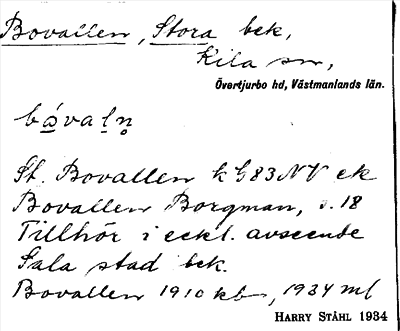 Bovallen, Stora bek,
Kila sn,
Övertjurbo hd, Västmanlands län.
bo̱´va l̠n̥
St. Bovallen k G83NV ek
Bovallen Borgman, s. 18
Tillhör i eckl. avseende
Sala stad bek.
Bovallen 1910 kb, 1934 ml
HARRY STÅHL 1934